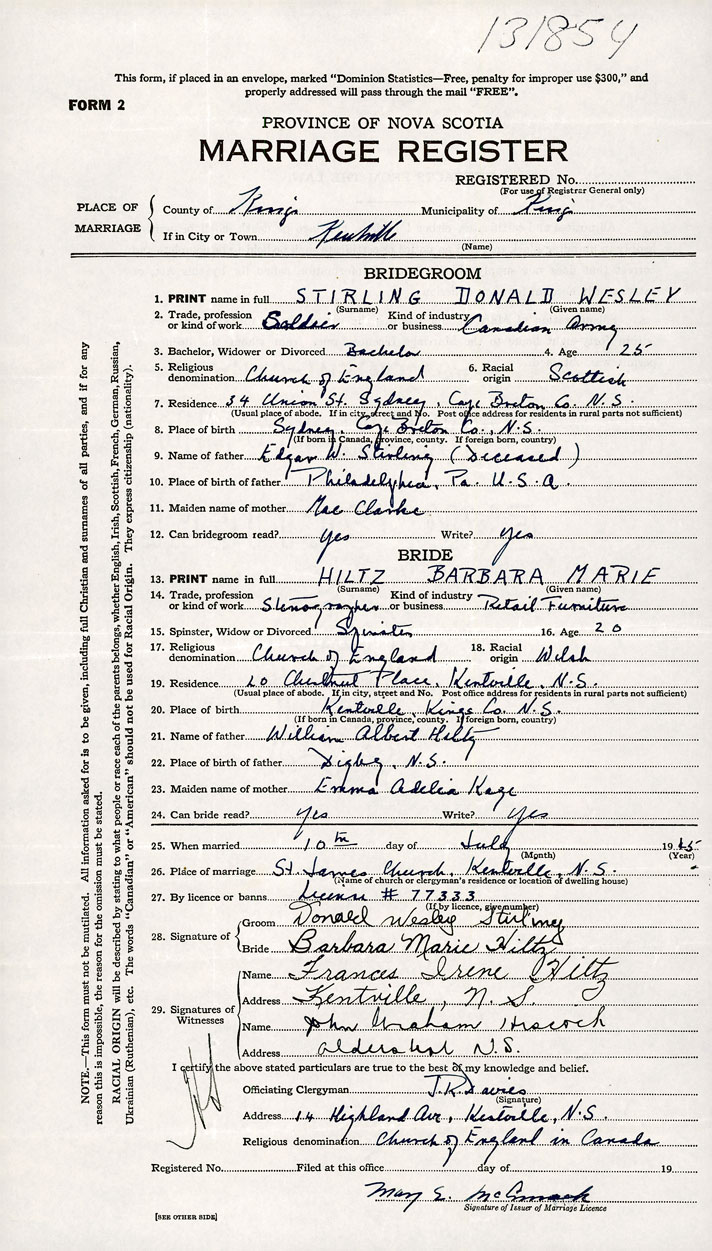 131854
This form, if placed in an envelope, marked "Dominion Statistics—Free, penalty for improper use $300," and
properly addressed will pass through the mail "FREE".
FORM 2
PROVINCE OF NOVA SCOTIA
MARRIAGE REGISTER
REGISTERED No.
(For use of Registrar General only)
PLACE OF MARRIAGE
County of Kings Municipality of Kings
If in City or Town Kentville
(Name)
BRIDEGROOM
1. PRINT name in full STIRLING DONALD WESLEY
(Surname) (Given name)
2. Trade, profession or kind of work Soldier Kind of industry or business Canadian Army
3. Bachelor, Widower or Divorced Bachelor 4. Age 25
5. Religious denomination Church of England 6. Racial origin Scottish
7. Residence 34 Union St. Sydney, Cape Breton Co. N.S.
(Usual place of abode. If in city, street and No. Post office address for residents in rural parts not sufficient)
8. Place of birth Sydney, Cape Breton Co., N.S.
(If born in Canada, province, county. If foreign born, country)
9. Name of father Edgar W. Stirling (Deceased)
10. Place of birth of father Philadelphia, Pa. U.S.A.
11. Maiden name of mother Mae Clarke
12. Can bridegroom read? yes Write? yes
BRIDE
13. PRINT name in full HILTZ BARBARA MARIE
(Surname) (Given name)
14. Trade, profession or kind of work Stenographer Kind of industry or business Retail Furniture
15. Spinster, Widow or Divorced Spinster 16. Age 20
17. Religious denomination Church of England 18. Racial origin Welsh
19. Residence 20 Chestnut Place, Kentville, N.S.
(Usual place of abode. If in city, street and No. Post office address for residents in rural parts not sufficient)
20. Place of birth Kentville, Kings Co. N.S.
(If born in Canada, province, county. If foreign born, country)
21. Name of father William Albert Hiltz
22. Place of birth of father Digby, N.S.
23. Maiden name of mother Emma Adelia Kaye
24. Can bride read? Yes Write? Yes
25. When married 10th day of July 1945
(Month) (Year)
26. Place of marriage St. James Church, Kentville, N.S.
(Name of church or clergyman's residence or location of dwelling house)
27. By licence or banns License # 77333
(If by licence, give number)
28. Signature of
Groom Donald Wesley Stirling
Bride Barbara Marie Hiltz
29. Signatures of Witnesses
Name Frances Irene Hiltz
Address Kentville, N.S.
Name John Graham
Address Aldershot N.S.
I certify the above stated particulars are true to the best of my knowledge and belief.
Officiating Clergyman J.R. Davies
(Signature)
Address 14 Highland Av., Kentville, N.S.
Religious denomination Church of England in Canada
Registered No. Filed at this office day of 19
Mary E.
Signature of Issuer of Marriage Licence
[SEE OTHER SIDE]
NOTE.—This form must not be mutilated. All information asked for is to be given, including full Christian and surnames of all parties, and if for any
reason this is impossible, the reason for the omission must be stated.
RACIAL ORIGIN will be described by stating to what people or race each of the parents belongs, whether English, Irish, Scottish, French, German, Russian,
Ukrainian (Ruthenian), etc. The words "Canadian" or "American" should not be used for Racial Origin. They express citizenship (nationality).